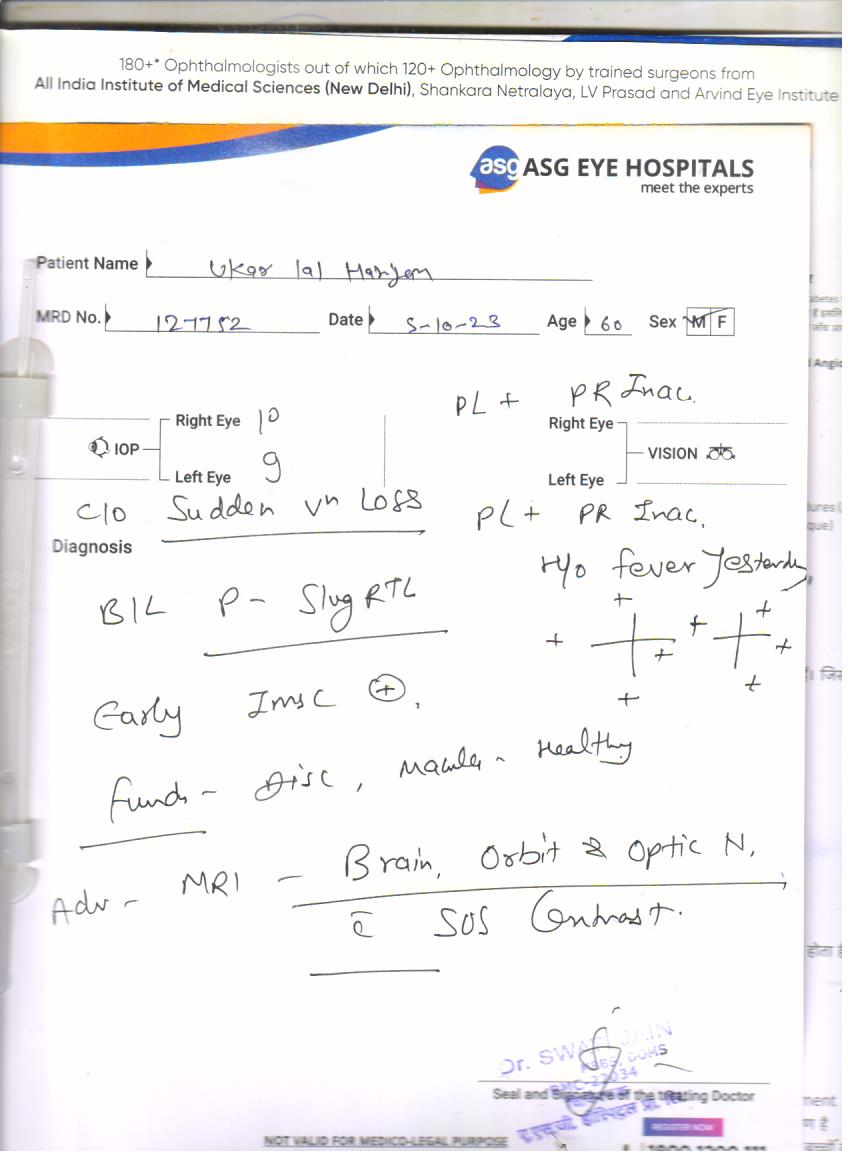 180+* Ophthalmologists out of which 120+ Ophthalmology by trained surgeons from
All India Institute of Medical Sciences (New Delhi), Shankara Netralaya, LV Prasad and Arvind Eye Institute
asg ASG EYE HOSPITALS
meet the experts
Patient Name Ukar lal Harijan
MRD No. 127752 Date 5-10-23 Age 60 Sex M F
PL + PR Inac.
Right Eye 10
Right Eye
IOP
VISION
Left Eye 9
Left Eye
C/O Sudden Vn Loss
PL + PR Inac.
Diagnosis
H/o fever Yesterday
B/L P - Slug RTL
+ + + + + + + +
Early Imsc +,
Fundus - Disc, Macula - Healthy
Adv - MRI - Brain, Orbit & Optic N.
c̄ SOS Contrast.
Dr. SWATI JAIN
MBBS, DOMS
22034
Seal and Signature of the treating Doctor
REGISTER NOW
NOT VALID FOR MEDICO-LEGAL PURPOSE